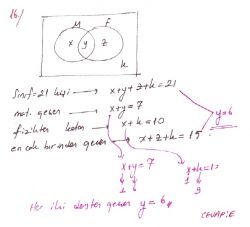 16/
M F
x y z
k
Sınıf 21 kişi → x+y+z+k=21
mat. geçen → x+y=7
fizikten kalan → x+k=10
en çok birinden geçen → x+z+k=15
y=6
x+y=7 x+k=10
1 6 1 9
Her iki dersten geçen y=6
CEVAP:E